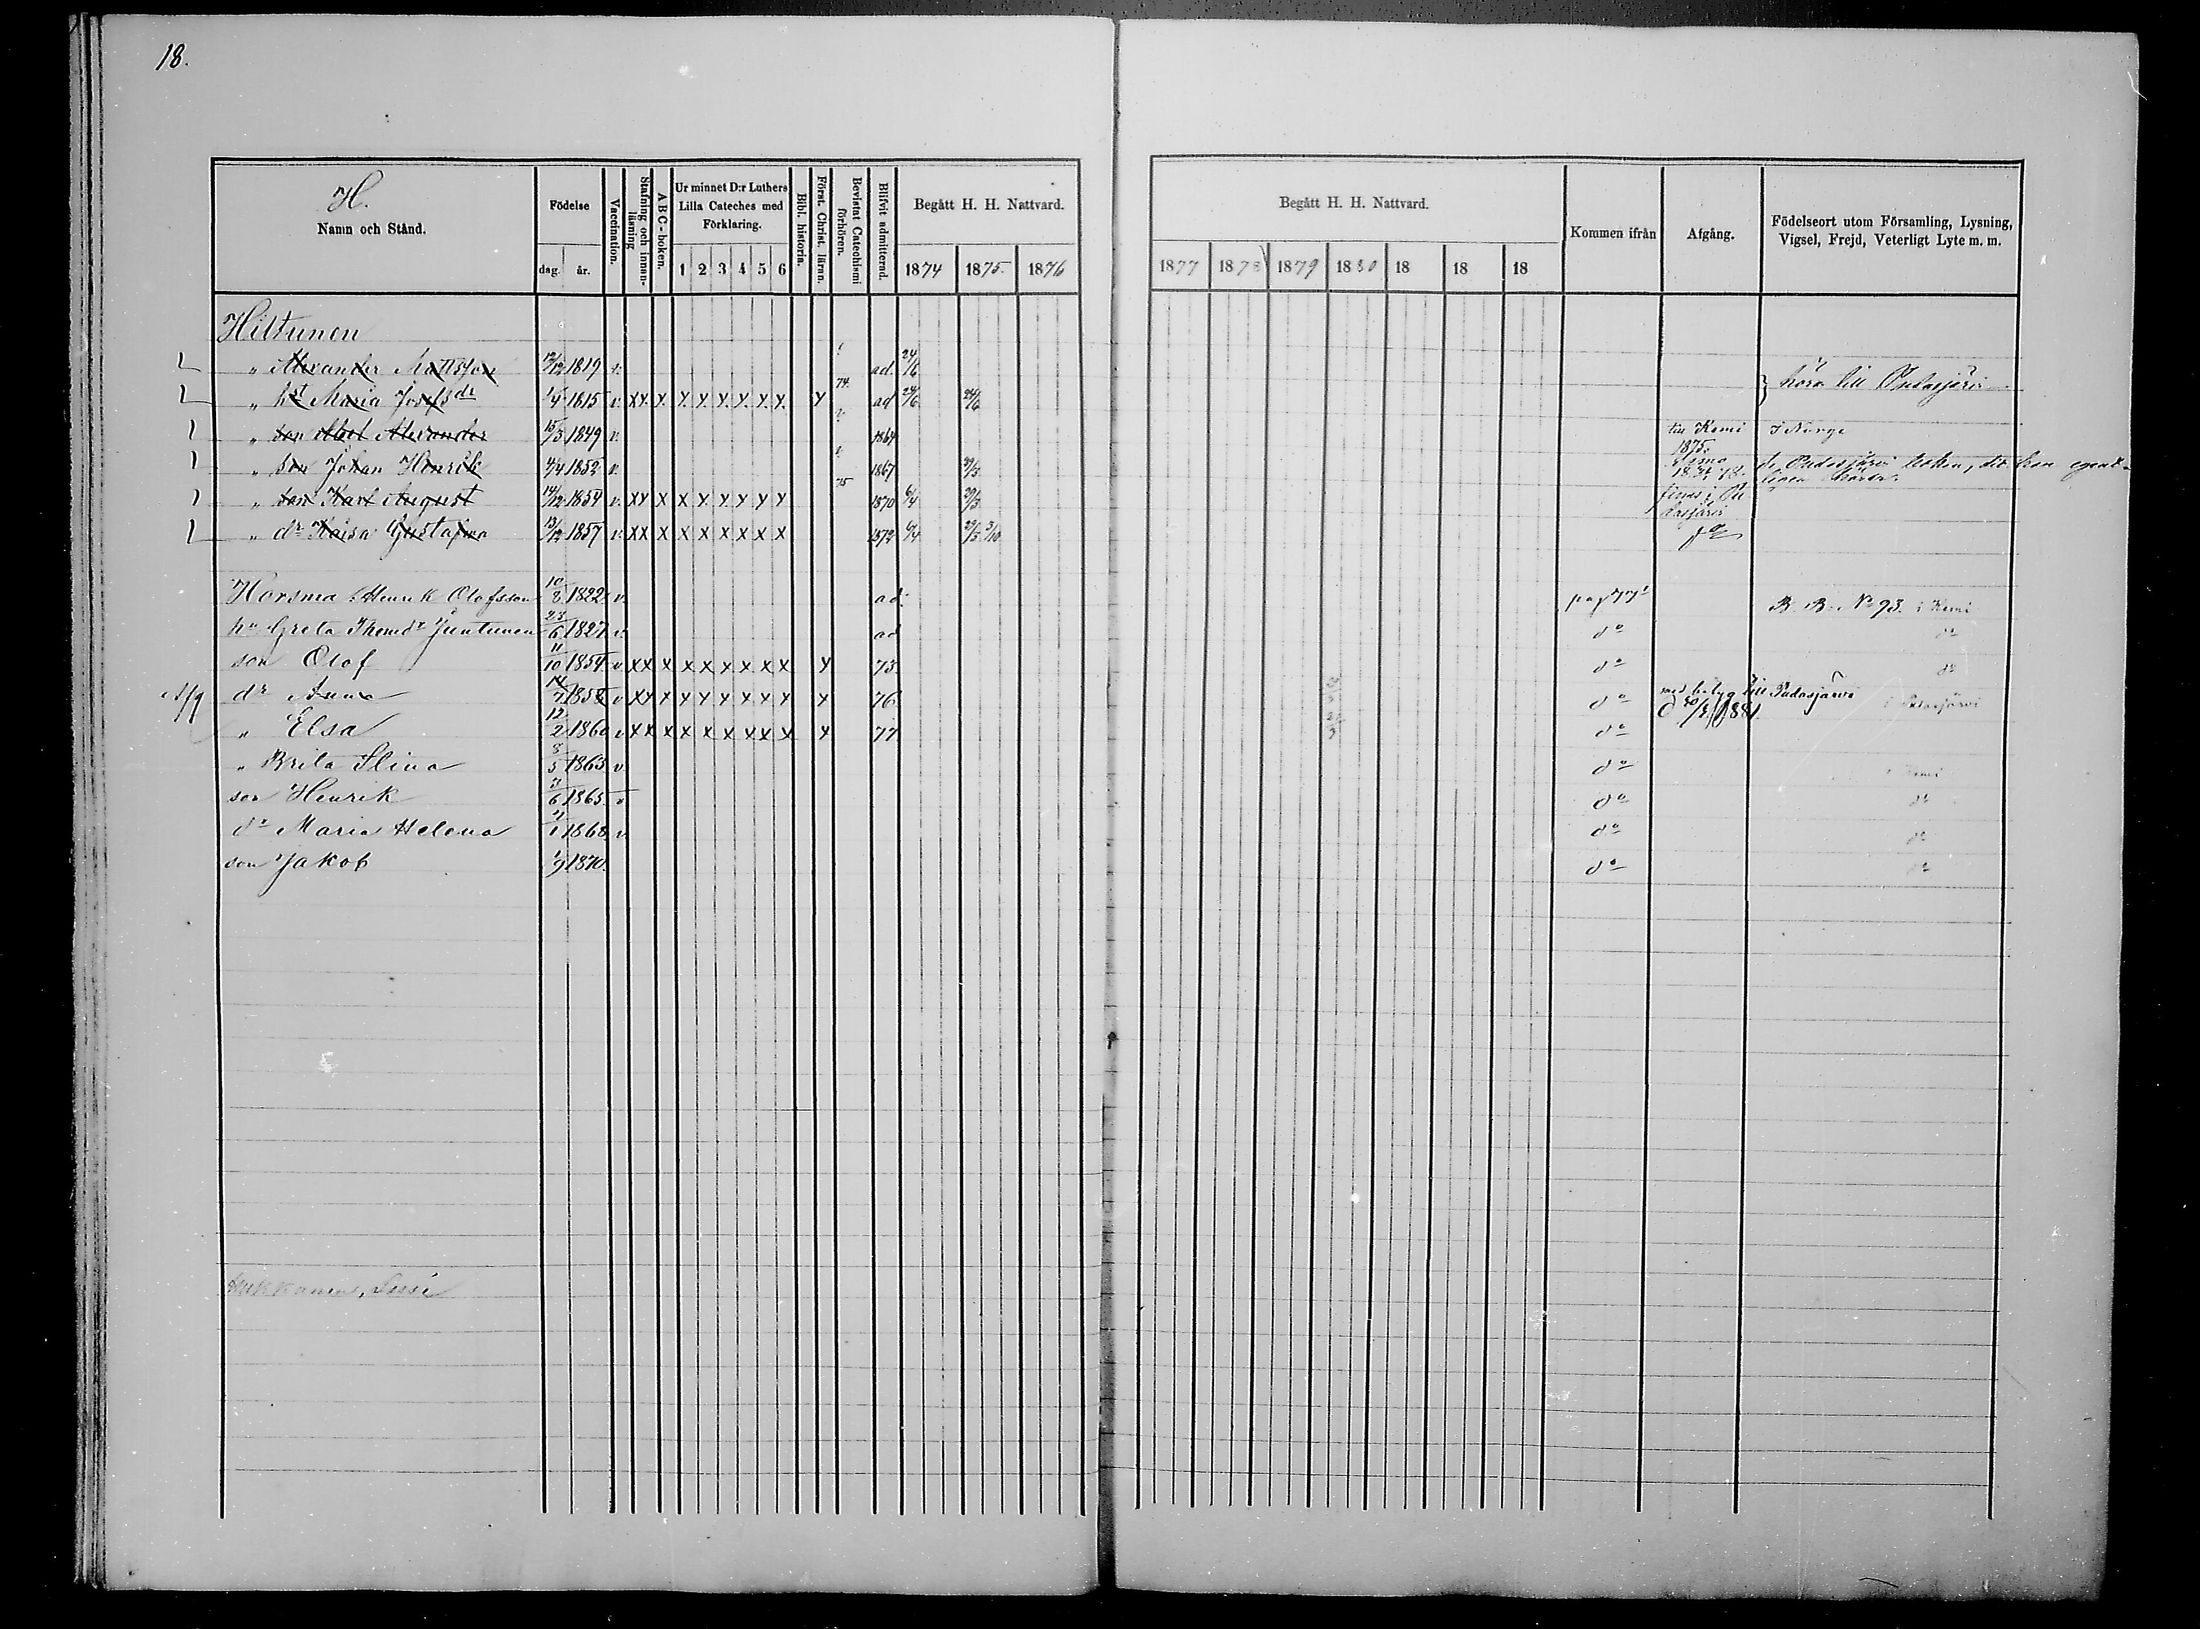 18.
H.
Namn och Stånd.
Födelse
dag. år.
Vaccination.
Stafning och innanläsning.
ABC-boken.
Ur minnet D:r Luthers Lilla Cateches med Förklaring.
1 2 3 4 5 6
Bibl. historia.
Först. Christ. läran.
Bevistat Catechismi förhören.
Blifvit admitterad.
Begått H. H. Nattvard.
1874 1875. 1876
Begått H. H. Nattvard.
1877 1878 1879 1880 18 18 18
Kommen ifrån
Afgång.
Födelseort utom Församling, Lysning, Vigsel, Frejd, Veterligt Lyte m. m.
Hiltunen
" Alexander Mattsson 12/12 1819 v. ad. 24/6 } höra till Pudasjärvi
" Maria Josefsdr 1/4 1815 v. xx. x x x x x x x x 74. ad 24/6 24/6
" son Abel Alexander 15/3 1849 v. 1864 till Kemi 1875. i Norge
" son Johan Henrik 4/4 1852 v. 1867 30/5
" son Karl August 14/12 1854 v. xx x x x x x x x 75 1870 6/4 30/5
" dr Kaisa Gustafva 13/12 1857 v. xx x x x x x x x 1872 6/4 3/10
Horsma Henrik Olofsson 10/8 1822 v. ad. pag 77 B. B. No 93. i Kemi
hu Greta Thomdr Juntunen 23/6 1827 v. ad do do
son Olof 11/10 1854 v xx x x x x x x x x 73. do do
dr Anna 14/7 1858 v xx x x x x x x x x 76 do med betyg till Pudasjärvi i Pudasjärvi
" Elsa 12/2 1860 v xx x x x x x x x x 77 do
" Brita Stina 8/5 1863 v do i Kemi
son Henrik 3/6 1865 v do do
dr Maria Helena 4/1 1868 v. do do
son Jakob 1/9 1870. do do